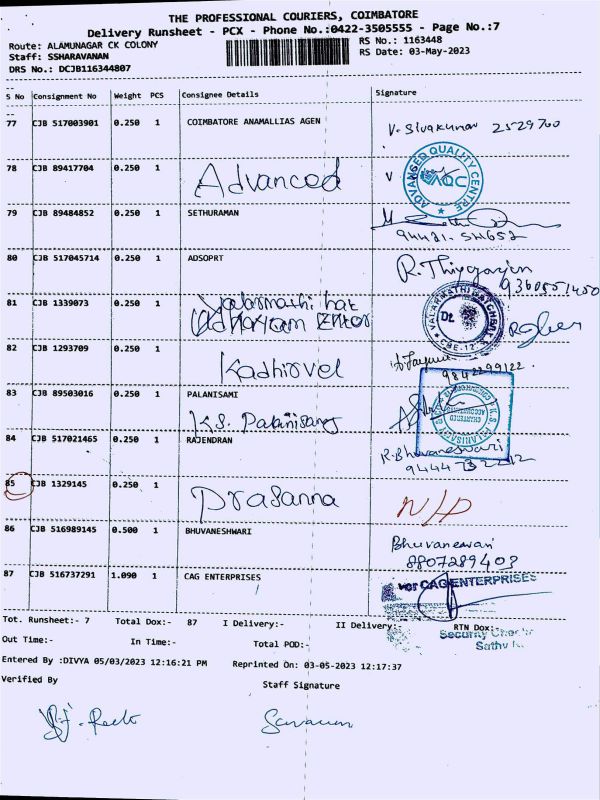 THE PROFESSIONAL COURIERS, COIMBATORE
Delivery Runsheet - PCX - Phone No.:0422-3505555 - Page No.:7
Route: ALAMUNAGAR CK COLONY
RS No.: 1163448
Staff: SSHARAVANAN
RS Date: 03-May-2023
DRS No.: DCJB116344807
S No Consignment No Weight PCS Consignee Details Signature
77 CJB 517003901 0.250 1 COIMBATORE ANAMALLIAS AGEN V. Sivakumar 2529700
78 CJB 89417704 0.250 1 Advanced
ADVANSED QUALITY CENTRE
AQC
79 CJB 89484852 0.250 1 SETHURAMAN
80 CJB 517045714 0.250 1 ADSOPRT R. Thiyagarajan
9360551450
81 CJB 1339073 0.250 1
82 CJB 1293709 0.250 1 Kadhirvel
9842299122
83 CJB 89503016 0.250 1 PALANISAMI
K.S. Palanisamy
84 CJB 517021465 0.250 1 RAJENDRAN R. Bhuvaneswari
85 CJB 1329145 0.250 1 Prasanna N/D
86 CJB 516989145 0.500 1 BHUVANESHWARI Bhuvaneswari
8807289403
87 CJB 516737291 1.090 1 CAG ENTERPRISES
CAG ENTERPRISES
Tot. Runsheet:- 7 Total Dox:- 87 I Delivery:- II Delivery:- RTN Dox:-
Out Time:- In Time:- Total POD:-
Entered By :DIVYA 05/03/2023 12:16:21 PM Reprinted On: 03-05-2023 12:17:37
Verified By Staff Signature
Saravanan